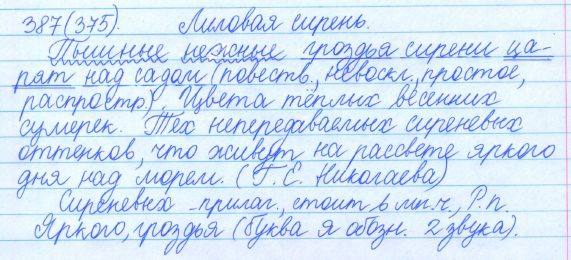 387(375). Лиловая сирень.
Пышные нежные гроздья сирени ца-
рят над садом (повеств., невоскл., простое,
распростр.). Цвета тёплых весенних
сумерек. Тех непередаваемых сиреневых
оттенков, что живут на рассвете яркого
дня над морем. (Г. Е. Николаева)
Сиреневых - прилаг., стоит в мн.ч., Р.п.
Яркого, гроздья (буква я обозн. 2 звука).